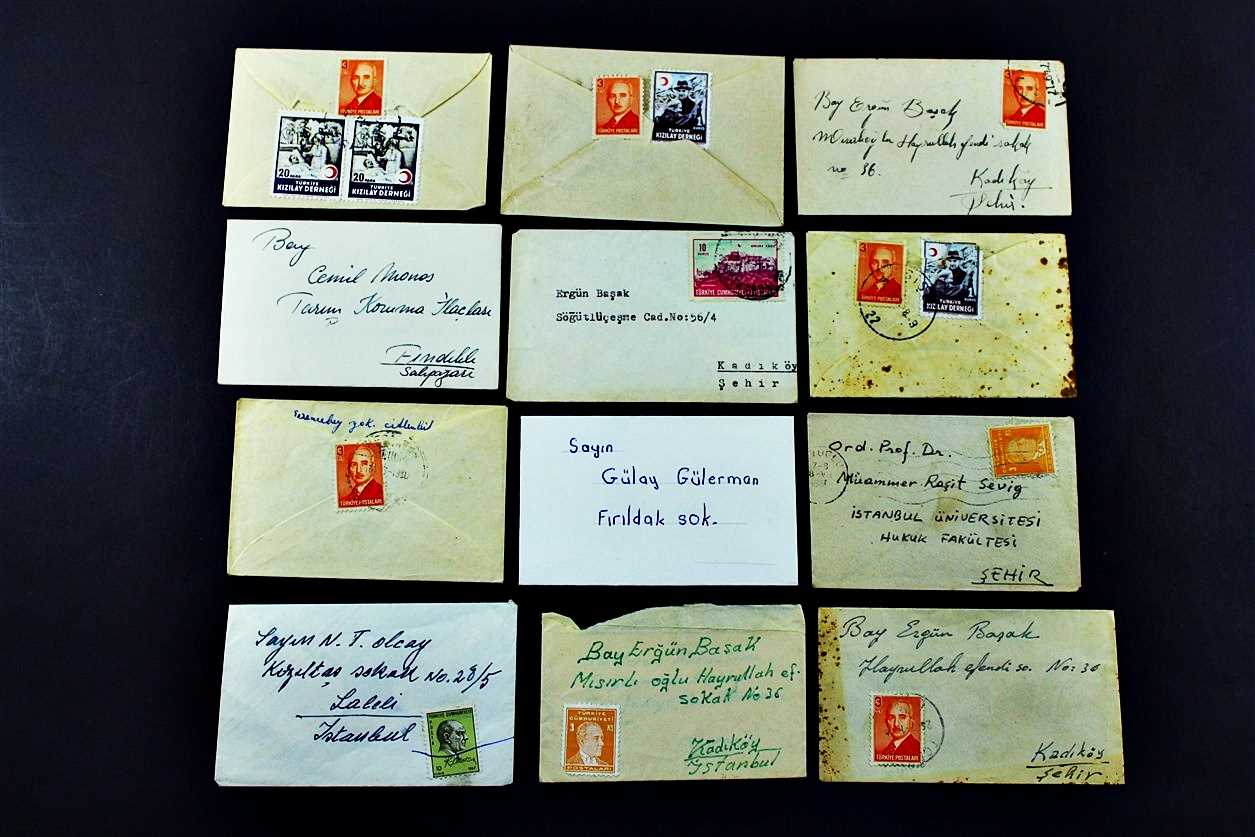 3
TÜRKİYE POSTALARI
20 PARA
TÜRKİYE
KIZILAY DERNEĞİ
20 PARA
TÜRKİYE
KIZILAY DERNEĞİ
3
TÜRKİYE POSTALARI
1
KURUŞ
TÜRKİYE
KIZILAY DERNEĞİ
Bay Ergün Başak
Hayrullah efendi sokak
no 36.
Kadıköy
Şehir.
Bay
Cemil Monos
Tarım Koruma İlaçları
Fındıklı
Salıpazarı
10
KURUŞ
TÜRKİYE CUMHURİYETİ
Ergün Başak
Söğütlüçeşme Cad.No:56/4
Kadıköy
Şehir
3
TÜRKİYE POSTALARI
TÜRKİYE
KIZILAY DERNEĞİ
22
3
TÜRKİYE POSTALARI
Sayın
Gülay Gülerman
Fırıldak sok.
Ord. Prof. Dr.
Muammer Raşit Sevig
İSTANBUL ÜNİVERSİTESİ
HUKUK FAKÜLTESİ
ŞEHİR
Sayın N. T. Olcay
Kızıltaş sokak No. 28/5
Laleli
İstanbul
TÜRKİYE CUMHURİYETİ
10
Bay Ergün Başak
Mısırlı oğlu Hayrullah ef.
sokak No 36
Kadıköy
İstanbul
TÜRKİYE
CUMHURİYETİ
3
POSTALARI
Bay Ergün Başak
Hayrullah efendi so. No: 36
3
TÜRKİYE POSTALARI
Kadıköy
Şehir